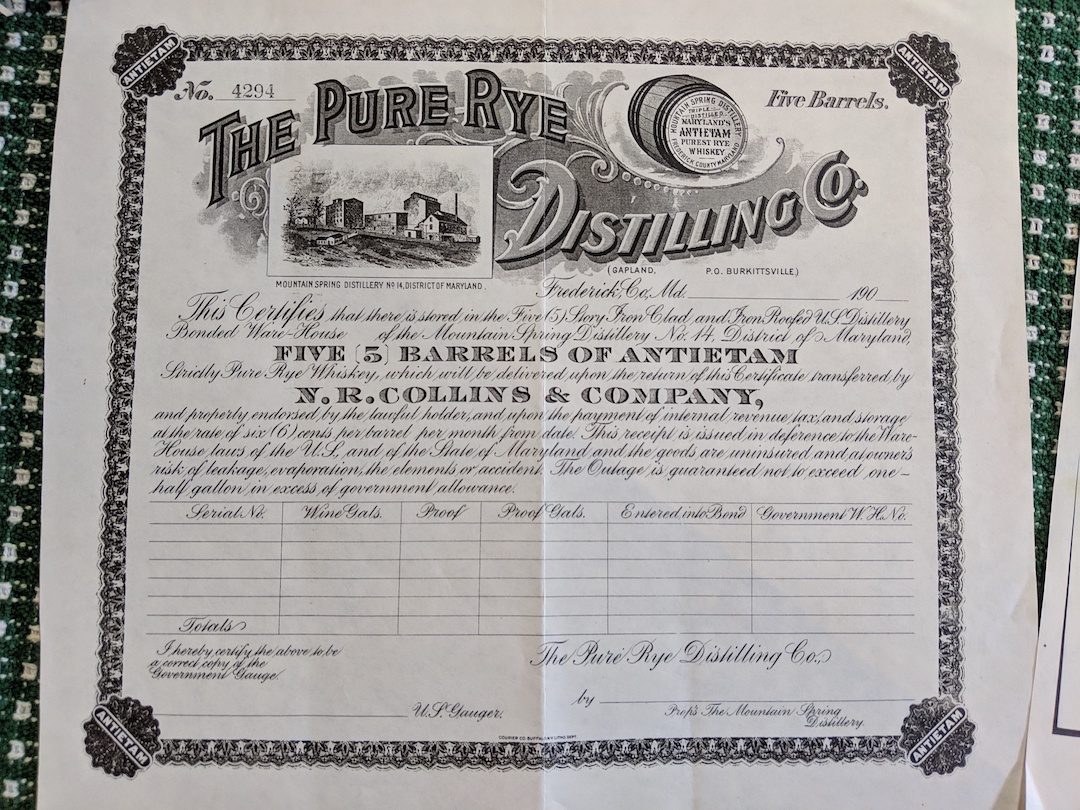 ANTIETAM
ANTIETAM
No. 4294
Five Barrels.
THE PURE RYE
DISTILLING CO.
MOUNTAIN SPRING DISTILLERY
TRIPLE
DISTILLED
MARYLAND'S
ANTIETAM
PUREST RYE
WHISKEY
FREDERICK COUNTY MARYLAND
MOUNTAIN SPRING DISTILLERY No 14, DISTRICT OF MARYLAND.
(GAPLAND, P.O. BURKITTSVILLE.)
Frederick, Co, Md. 190
This Certifies that there is stored in the Five (5) Story Iron Clad and Iron Roofed U.S. Distillery
Bonded Ware-House of the Mountain Spring Distillery No. 14, District of Maryland,
FIVE (5) BARRELS OF ANTIETAM
Strictly Pure Rye Whiskey, which will be delivered upon the return of this Certificate transferred by
N. R. COLLINS & COMPANY,
and properly endorsed by the lawful holder, and upon the payment of internal revenue tax, and storage
at the rate of six (6) cents per barrel per month from date. This receipt is issued in deference to the Ware-
House laws of the U.S, and of the State of Maryland and the goods are uninsured and at owner's
risk of leakage, evaporation, the elements or accident. The Outage is guaranteed not to exceed one-
half gallon in excess of government allowance.
Serial No. Wine Gals. Proof Proof Gals. Entered into Bond Government W. H. No.
Totals
I hereby certify the above to be
a correct copy of the
Government Gauge.
U.S. Gauger.
The Pure Rye Distilling Co.,
by
Prop's The Mountain Spring
Distillery.
ANTIETAM
ANTIETAM
COURIER CO. BUFFALO, N.Y. LITHO. DEPT.